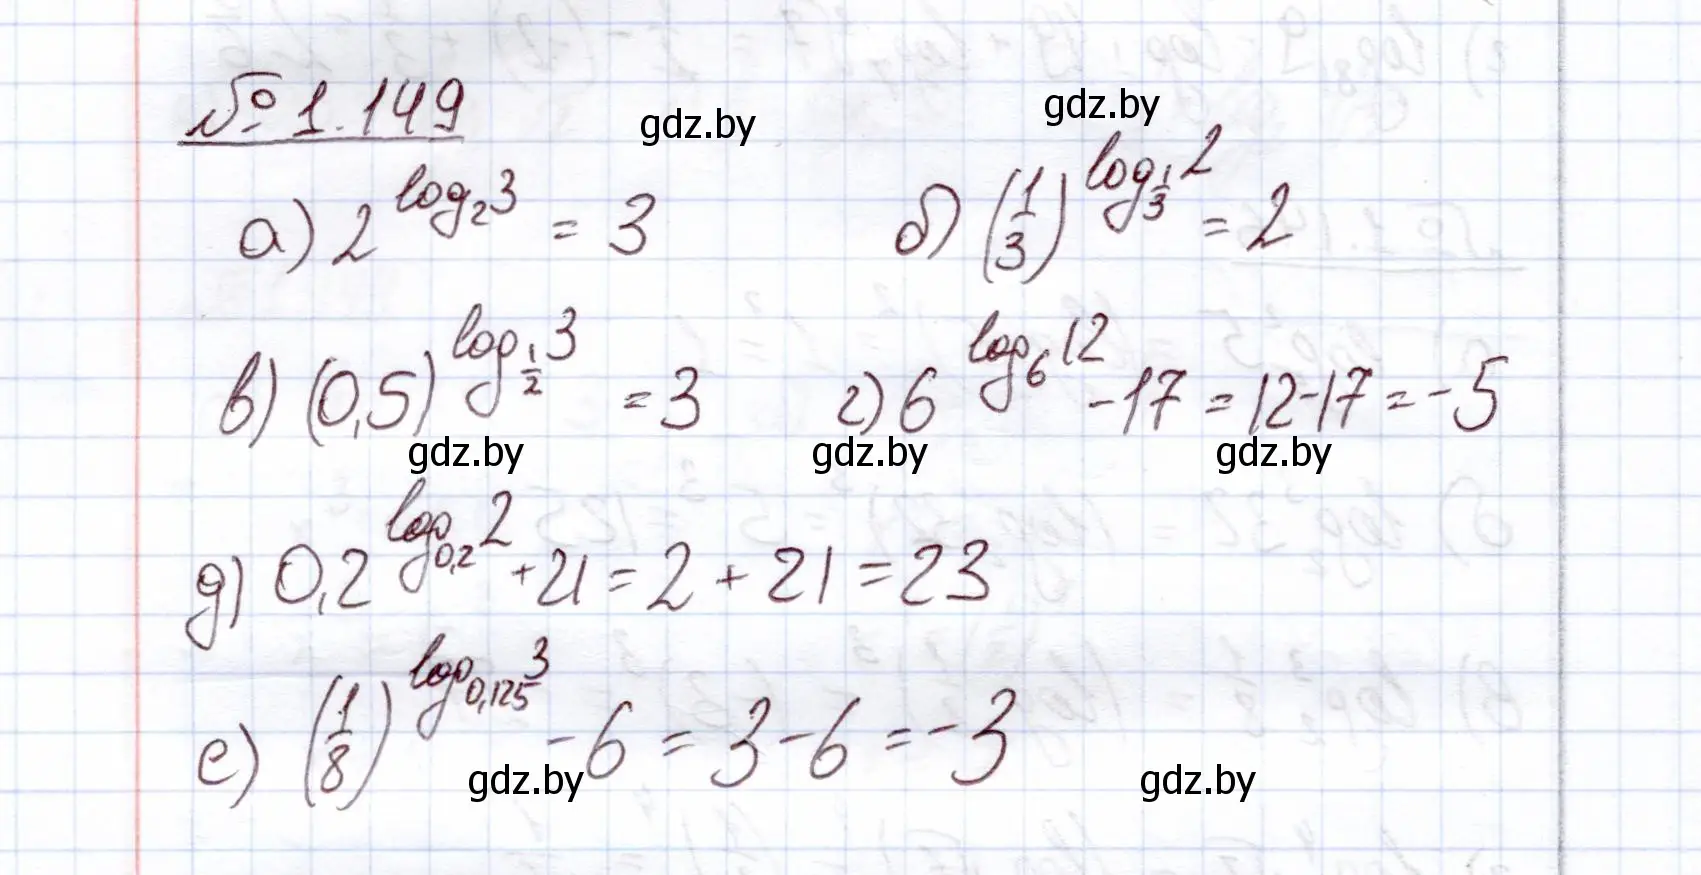 № 1.149
gdz.by
gdz.by
а) 2^{log_2 3} = 3
б) (1/3)^{log_{1/3} 2} = 2
в) (0,5)^{log_{1/2} 3} = 3
г) 6^{log_6 12} - 17 = 12 - 17 = -5
gdz.by
gdz.by
gdz.by
д) 0,2^{log_{0,2} 2} + 21 = 2 + 21 = 23
е) (1/8)^{log_{0,125} 3} - 6 = 3 - 6 = -3
gdz.by
gdz.by